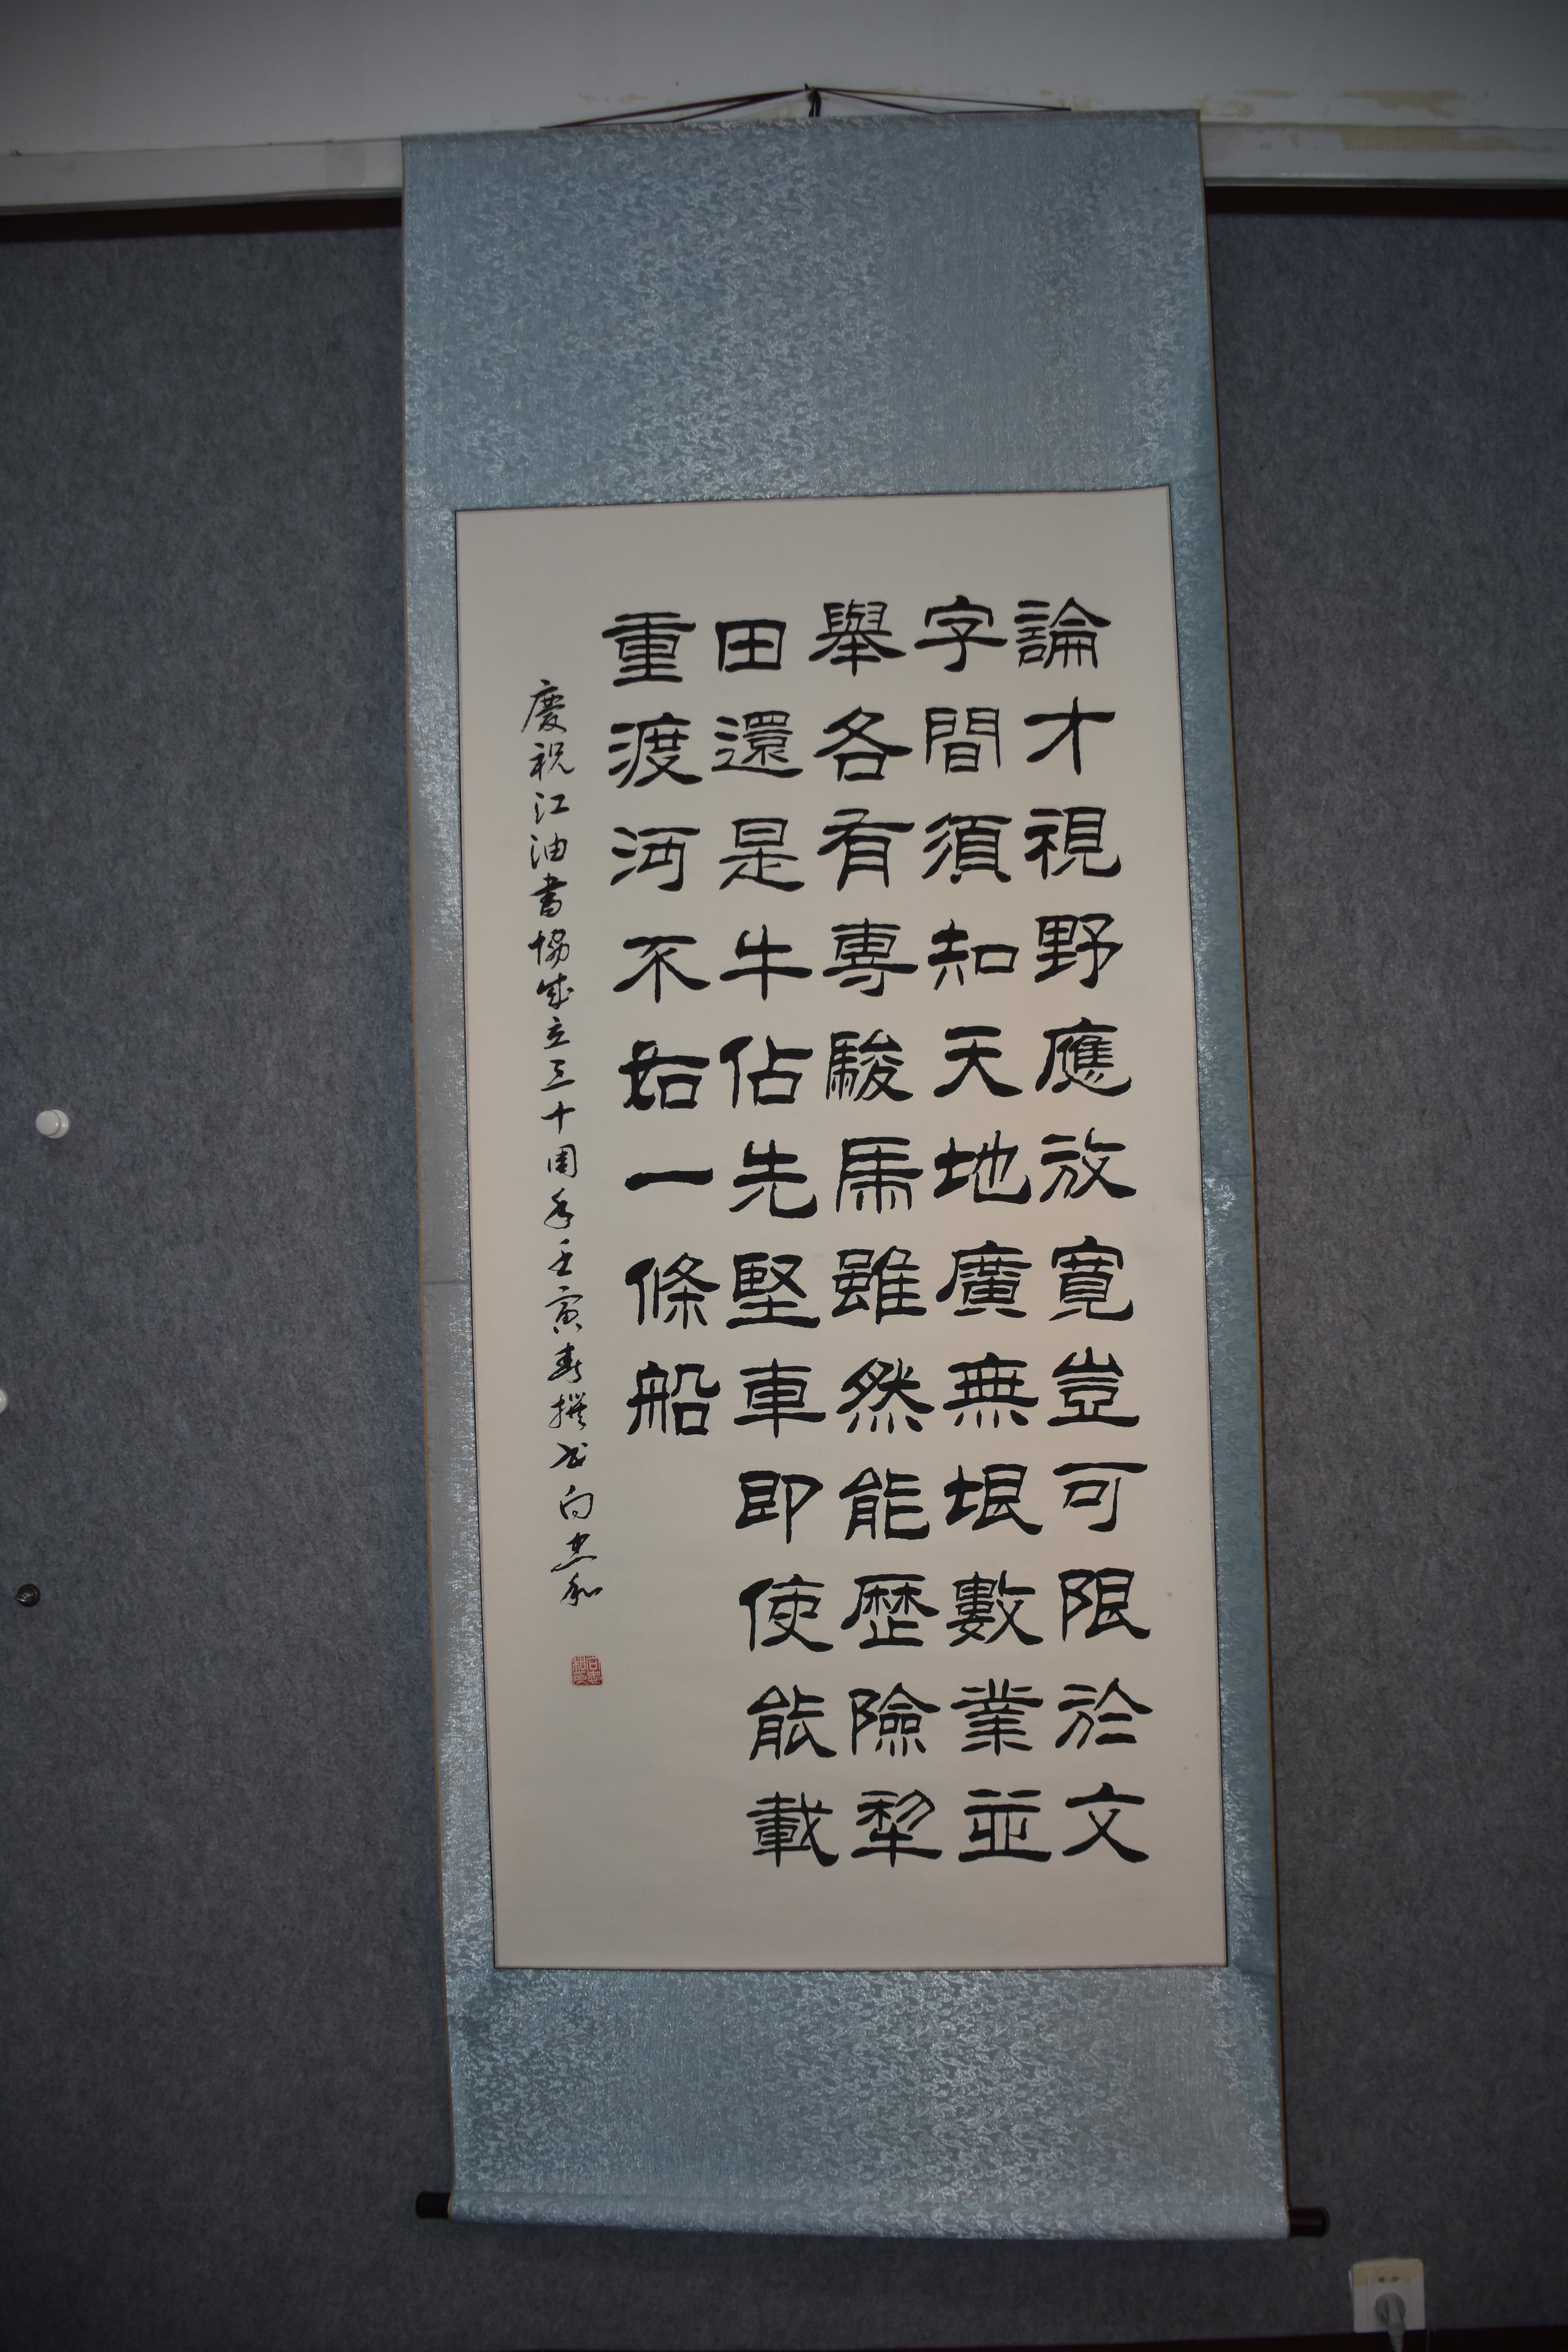 論才視野應放寬豈可限於文
字間須知天地廣無垠數業並
舉各有專駿馬雖然能歷險犂
田還是牛佔先堅車即使能載
重渡河不如一條船
慶祝江油書協成立三十周年壬寅春撰書向忠和